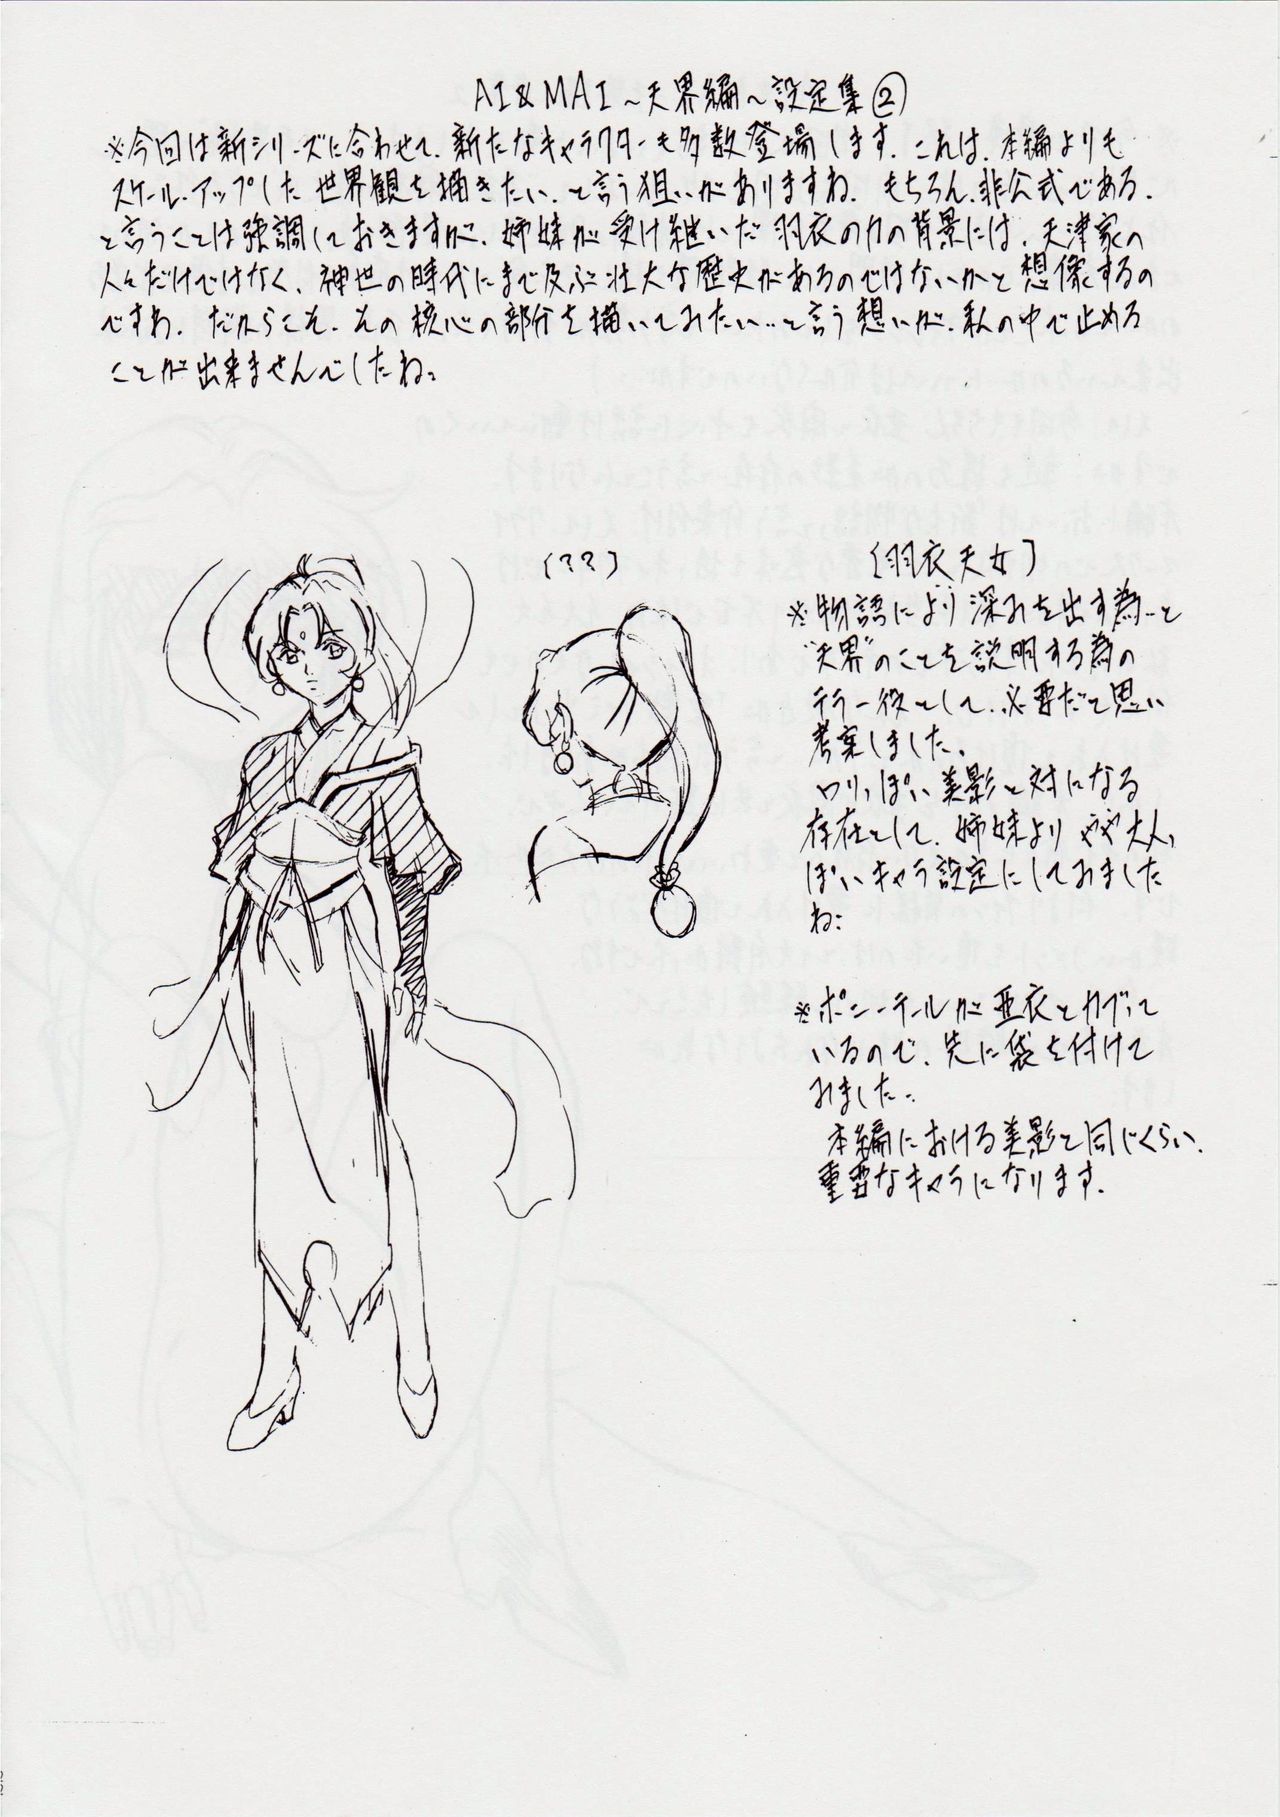 AI&MAI〜天界編〜設定集②
※今回は新シリーズに合わせて、新たなキャラクターも多数登場します。これは、本編よりも
スケール・アップした世界観を描きたい、と言う狙いがありますね。もちろん、非公式である、
と言うことは強調しておきますが、姉妹が受け継いだ羽衣の力の背景には、天津家の
人々だけではなく、神世の時代にまで及ぶ壮大な歴史があるのではないかと想像するの
ですわ。だからこそ、その核心の部分を描いてみたい…と言う想いが、私の中で止める
ことが出来ませんでしたね。
(??)
[羽衣天女]
※物語により深みを出す為…と
"天界"のことを説明する為の
テラー役として、必要だと思い
考案しました。
ロリっぽい美影と対になる
存在として、姉妹よりやや大人っ
ぽいキャラ設定にしてみました
ね。
※ポニーテールが亜衣とカブって
いるので、先に袋を付けて
みました…
本編における美影と同じくらい、
重要なキャラになります。
22